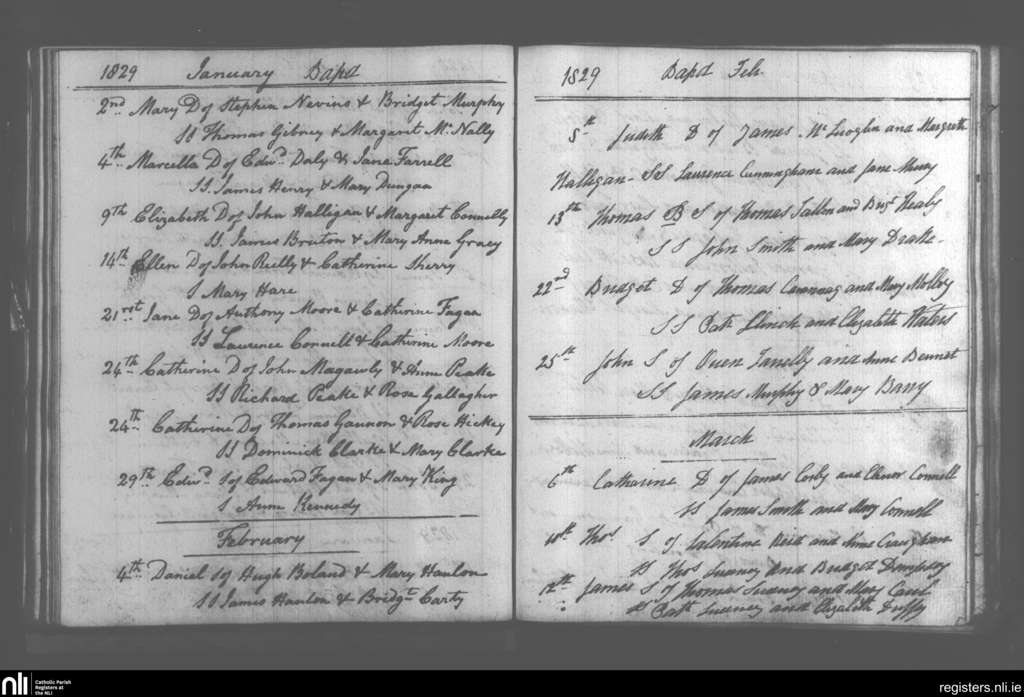 1829 January Bapd
2nd Mary D of Stephen Nevins & Bridget Murphy
SS Thomas Gibney & Margaret Mc Nally
4th Marcella D of Edwd Daly & Jane Farrell
SS. James Henry & Mary Dungan
9th Elizabeth D of John Halligan & Margaret Connelly
SS. James Bruton & Mary Anne Gracy
14th Ellen D of John Reilly & Catherine Sherry
S Mary Hare
21rst Jane D of Anthony Moore & Catherine Fagan
SS Laurence Connell & Catherine Moore
24th Catherine D of John Magawly & Anne Peake
SS Richard Peake & Rose Gallagher
24th Catherine D of Thomas Gannon & Rose Hickey
SS Dominick Clarke & Mary Clarke
29th Edwd S of Edward Fagan & Mary King
S Anne Kennedy
February
4th Daniel S of Hugh Boland & Mary Hanlon
SS James Hanlon & Bridgt Carty
1829 Bapd Feb.
5th Judith D of James and Margreth
Halligan - SS Laurence Cunningham and Jane
13th Thomas B S of Thomas Fallon and Brigt Healy
SS John Smith and Mary Drake
22nd Bridget D of Thomas and Mary Molloy
SS Patk and Elizabeth Waters
25th John S of Owen and Anne Bennet
SS James Murphy & Mary Barry
March
6th Catharine D of James Corby and Elenor Connell
SS James Smith and Mary Connell
10th Thos S of Valentine Reid and Anne
SS Thos Sweney and Bridget Dempsey
12th James S of Thomas Sweney and Mary
SS Patk Sweney and Elizabeth Duffy
nli Catholic Parish
Registers at
the NLI
registers.nli.ie